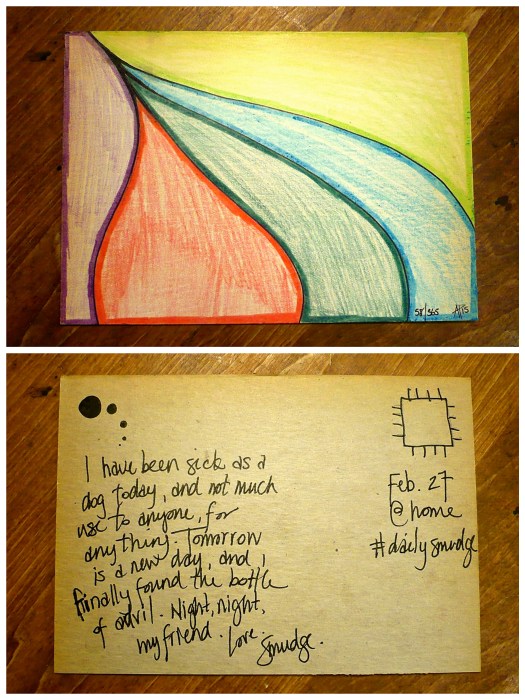 58/365
I have been sick as a
dog today, and not much
use to anyone, for
anything. Tomorrow
is a new day, and, I
finally found the bottle
of advil. Night, night,
my friend. Love.
Smudge.
Feb. 27
@home
#dailysmudge